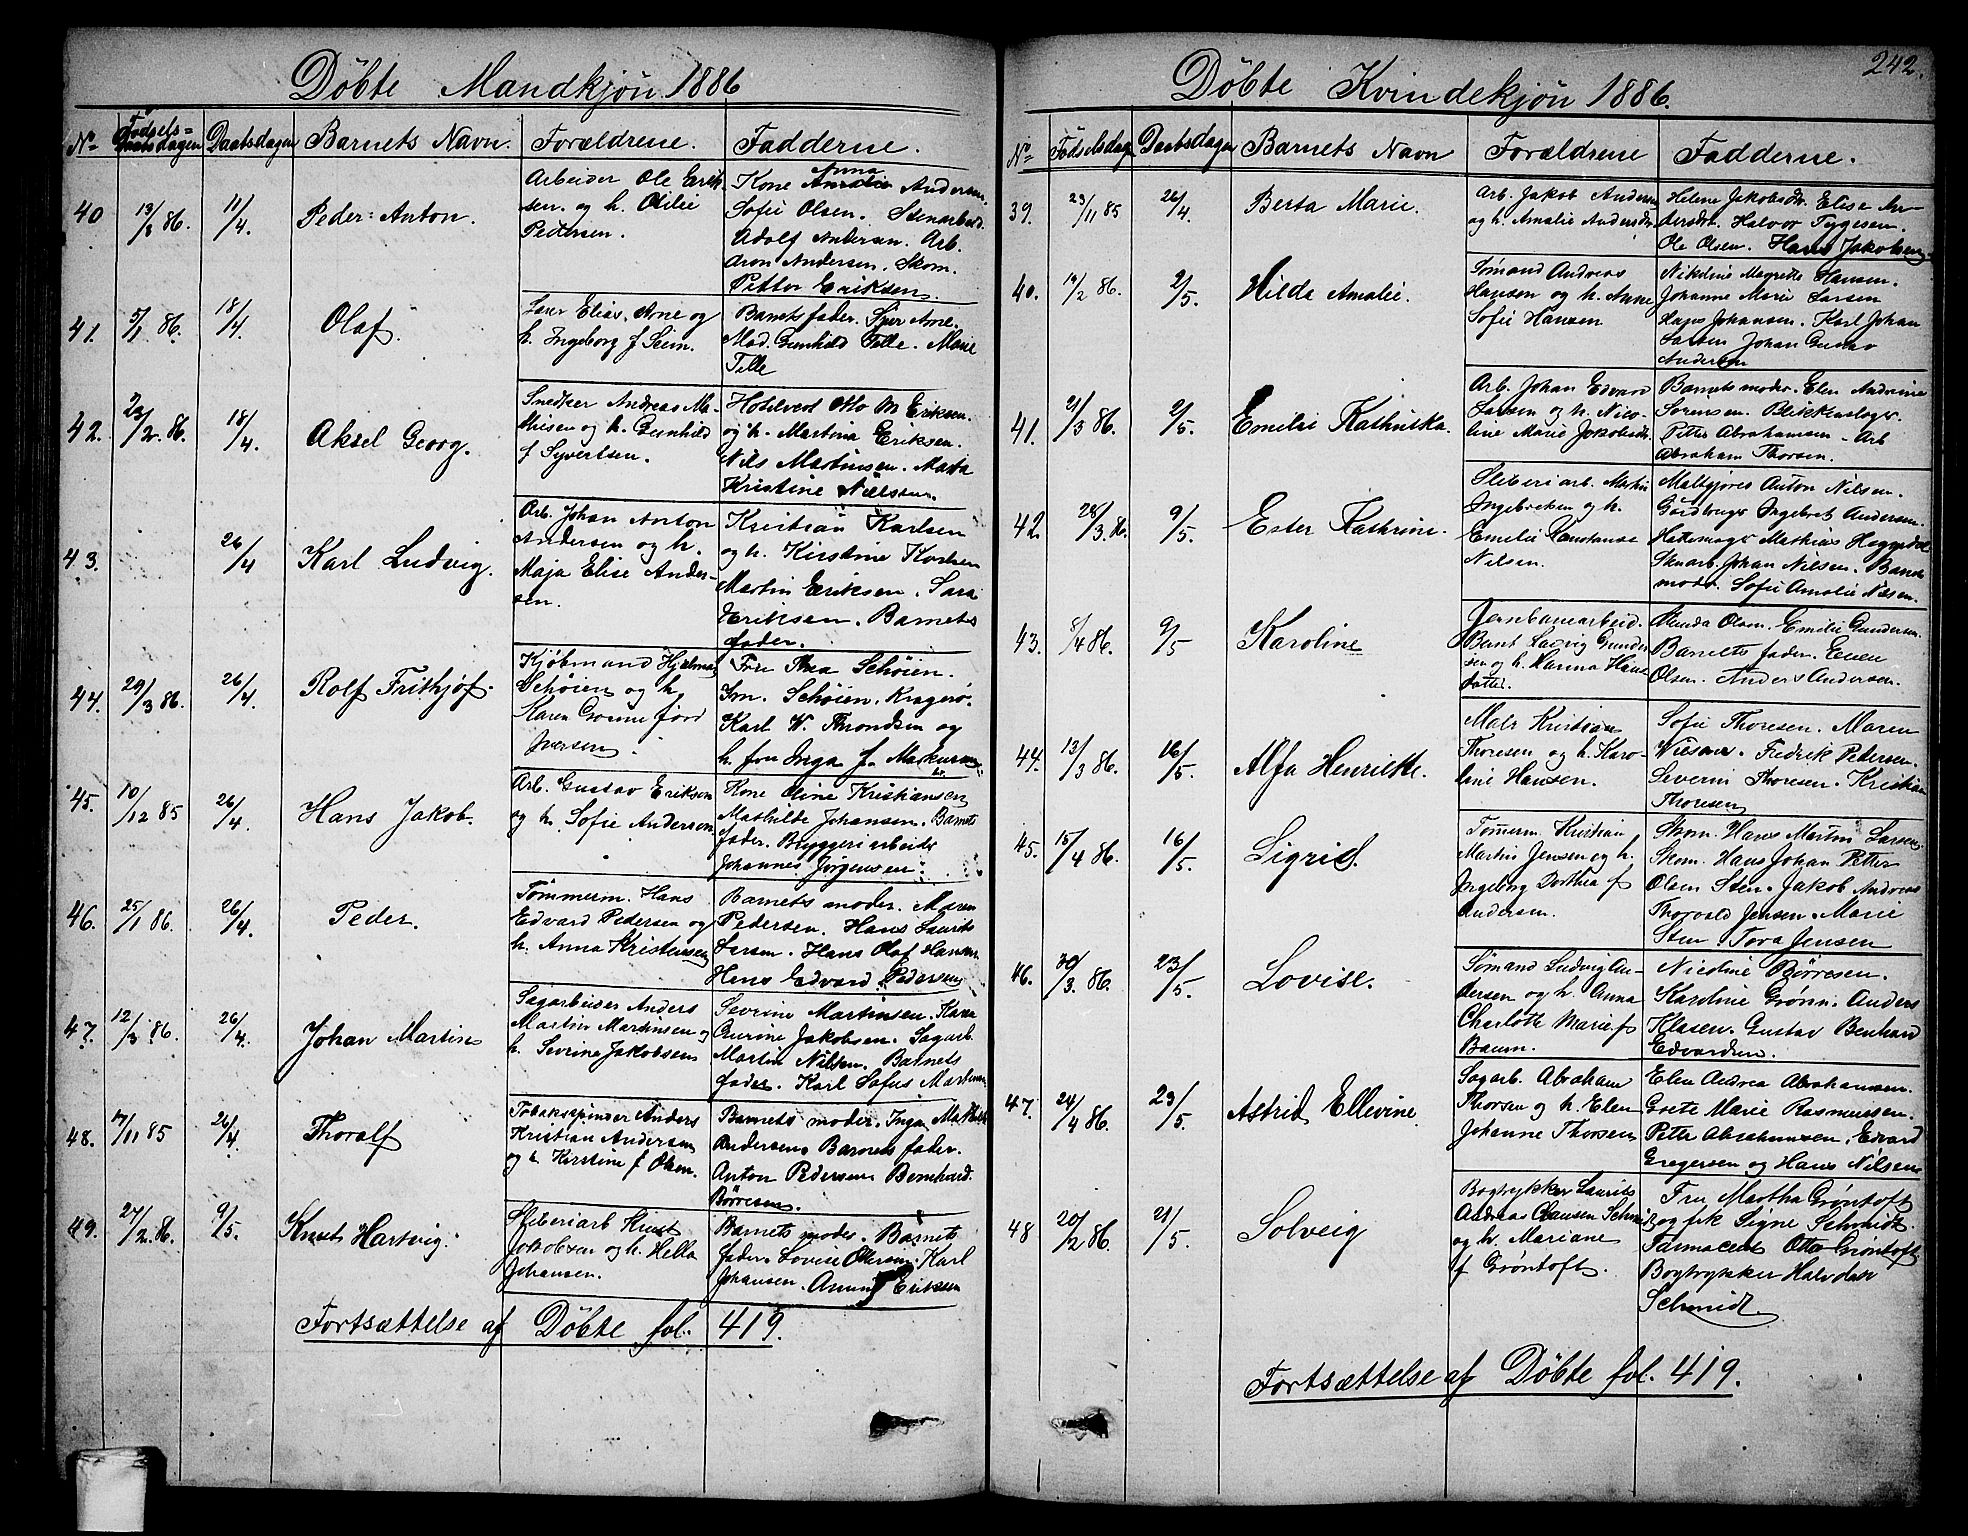 Döbte Mandkjön 1886
No Fødsels= Daabsdagen Barnets Navn. Forældrene. Fadderne.
40 13/3 86. 11/4. Peder Anton.
Arbeider Ole Erik-
sen. og h. Otilie
Pedersen.
Kone Anna Andersen.
Sofie Olsen. Stenarbeid.
Adolf Andersen. Arb.
Aron Andersen. Skom.
Petter Eriksen.
41. 5/1 86. 18/4 Olaf.
Elias Arne og
h. Ingeborg f Seim.
Barnets fader. Arne.
Mad. Gunhild Telle. Marie
Telle
42. 23/2. 86. 18/4. Aksel Georg.
Snedker Andreas Ma-
thisen og h. Gunhild
f Syvertsen.
Hotelvert Otto M Eriksen.
og h. Martina Eriksen.
Nils Martinsen. Marta
Kristine Nielsen.
43. 26/4 Karl Ludvig.
Arb. Johan Anton
Andersen og h.
Maja Elise Ander-
sen.
Kristian Karlsen
og h. Kirstine Karlsen
Martin Eriksen. Sara
Eriksen. Barnets
fader.
44. 29/3 86. 26/4. Rolf Frithjof.
Kjöbmand Hjalmar
Schöien og h.
Karen
Iversen
Fru Thea Schöien.
Schöien. Kragerö.
Karl W. Throndsen og
h. fru Inga f. Markussen
45. 10/12 85 26/4. Hans Jakob.
Arb. Gustav Eriksen
og h. Sofie Andersen
Kone Oline Kristiansen
Mathilde Johansen. Barnets
fader. Bryggeriarbeider
Johannes Jörgensen.
46. 25/1 86. 26/4. Peder.
Tömmerm. Hans
Edvard Pedersen og
h. Anna Kristensen
Barnets moder. Maren
Pedersen. Hans Laurits
Larsen. Hans Olaf Hansen.
Hans Edvard Pedersen
47. 12/3 86. 26/4. Johan Martin
Sagarbeider Anders
Martin Martinsen og
h. Severine Jakobsen
Severine Martinsen. Karen
Gurine Jakobsen. Sagarb.
Martin Nilsen. Barnets
fader. Karl Sofus Martinsen
48. 17/11 85 26/4. Thoralf
Tobakspinder Anders
Kristian Andersen
og h. Kirstine f Olsen.
Barnets moder. Inga Mathilde
Andersen. Barnets fader.
Anton Pedersen. Bernhard.
Börresen.
49. 27/2. 86. 9/5. Knut Hartvig.
Sliberiarb Knut
Jakobsen og h. Hella
Johansen.
Barnets moder. Barnets
fader. Lovise Karl
Johansen. Eriksen
Fortsættelse af Döbte fol. 419.
242.
Döbte Kvindekjön 1886.
No Födselsdag Daabsdagen Barnets Navn Forældrene Fadderne.
39. 23/11 85 26/4. Berta Marie.
Arb. Jakob Andersen
og h. Amalie Andersdtr
Helene Jakobsdtr. Elise An-
dersdtr. Halvor Tygesen.
Ole Olsen. Hans Jakobsen
40. 14/2 86. 2/5. Hilda Amalie.
Sömand Andreas
Hansen og h. Anne
Sofie Hansen
Nikoline Magrette Hansen.
Johanne Marie Larsen
Hans Johansen. Karl Johan
Larsen Johan Gustav
Andersen
41. 21/3 86. 2/5. Emilie Kathinka.
Arb. Johan Edvard
Larsen og h. Nico-
line Marie Jakobsdtr
Barnets moder. Elen Andrine
Sörensen. Blikkenslager
Petter Abrahamsen - Arb
Abraham Thorsen.
42. 28/3. 86. 9/5. Ester Kathrine.
Sliberiarb. Martin
Ingebretsen og h.
Emilie Konstanse
Nilsen.
Maltgjörer Anton Nilsen.
Gårdbrugr Ingebret Andersen.
Hattemager Mathias Heggedal
Johan Nilsen. Barnets
moder. Sofie Amalie Nilsen.
43. 8/4 86. 9/5 Karoline
Jernbanearbeid.
Bernt Ludvig Gunder-
sen og h. Hanna Hans
datter.
Olsen. Emilie Gundersen
Barnets fader. Even
Olsen. Anders Andersen.
44. 13/3 86. 16/5. Alfa Henriette.
Maler Kristian
Thoresen og h. Karo-
line Hansen.
Sofie Thoresen. Maren
Fredrik Pedersen.
Severin Thoresen. Kristian
Thoresen
45. 15/4 86. 16/5. Sigrid.
Tömerm. Kristian
Martin Jensen og h.
Ingeborg Dorthea f
Andersen.
Skom. Hans Martin Larsen.
Skom. Hans Johan Petter
Olsen Sten. Jakob Andreas
Thorvald Jensen. Marie
Sten Tora Jensen
46. 30/3. 86. 23/5. Lovise.
Sömand Ludvig An-
dersen og h. Anna
Charlotte Marie f
Baum.
Nicoline Börresen.
Karoline Grönn. Anders
Klasen. Gustav Bernhard
Edvardsen.
47. 24/4 86. 23/5. Astrid Ellevine.
Sagarb. Abraham
Thorsen og h. Elen
Johanne Thorsen
Elen Andrea Abrahamsen.
Grete Marie Rasmussen.
Petter Abrahamsen. Edvard
Gregersen og Hans Nilsen
48 20/2 86. 21/5. Solveig
Bogtrykker Laurits
Andreas Clausen Schmidt
og h. Mariane
f Gröntoft.
Fru Martha Gröntoft
og frk Signe Schmidt.
Farmaceut Otto Gröntoft
Bogtrykker Halvdan
Schmidt
Fortsættelse af Döbte fol. 419.